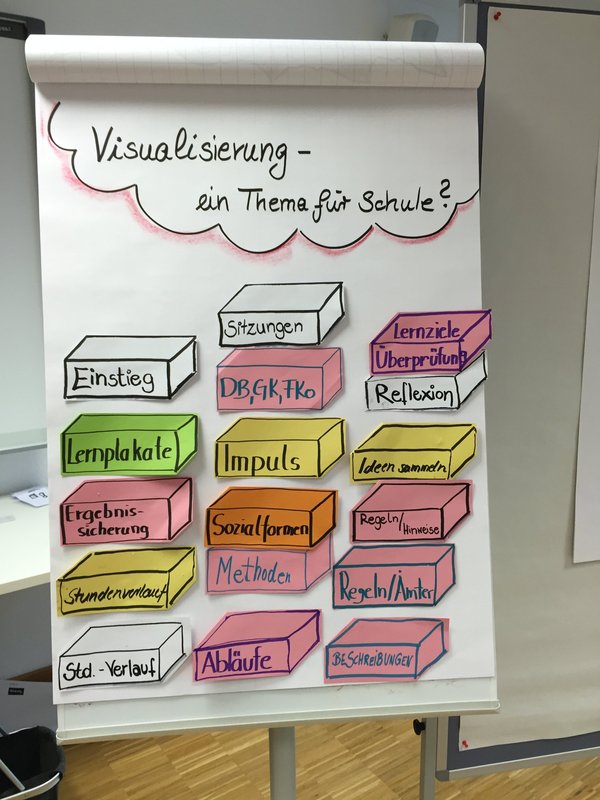 Visualisierung -
ein Thema für Schule?
Einstieg
Lernplakate
Ergebnis-
sicherung
Stundenverlauf
Std.-Verlauf
Sitzungen
DB, GK, FKo
Impuls
Sozialformen
Methoden
Abläufe
Lernziele
Überprüfung
Reflexion
Ideen sammeln
Regeln/
Hinweise
Regeln/Ämter
BESCHREIBUNGEN